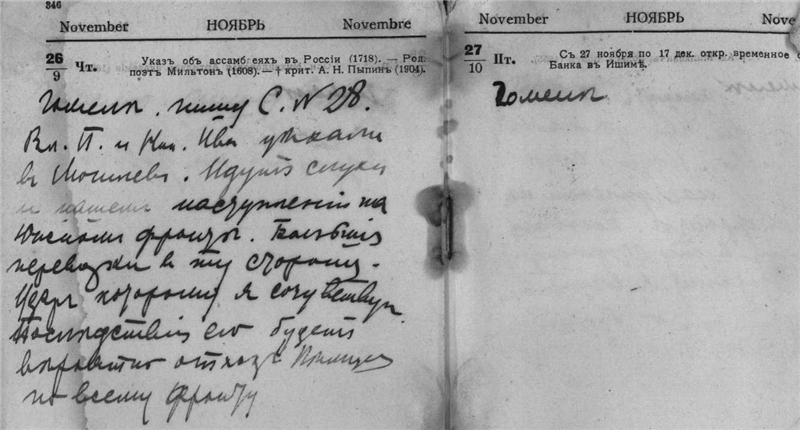 346
November НОЯБРЬ Novembre
26
9 Чт.
Указ об ассамблеях въ Россіи (1718). — Род.
поэтъ Мильтонъ (1608). — † крит. А. Н. Пыпинъ (1904).
Гомель. пишу С. N 28.
Вл. П. и Кн. Ива уѣхали
в Могилевъ. Идутъ слухи
о нашемъ наступленіи на
Южномъ фронтѣ. Большія
перевозки в ту сторону.
Идея которому я сочувствую
Послѣдствіемъ его будетъ
вѣроятно отходъ
по всему фронту
November НОЯБРЬ Nove
27
10 Пт.
Съ 27 ноября по 17 дек. откр. временное
Банка въ Ишимѣ.
Гомель